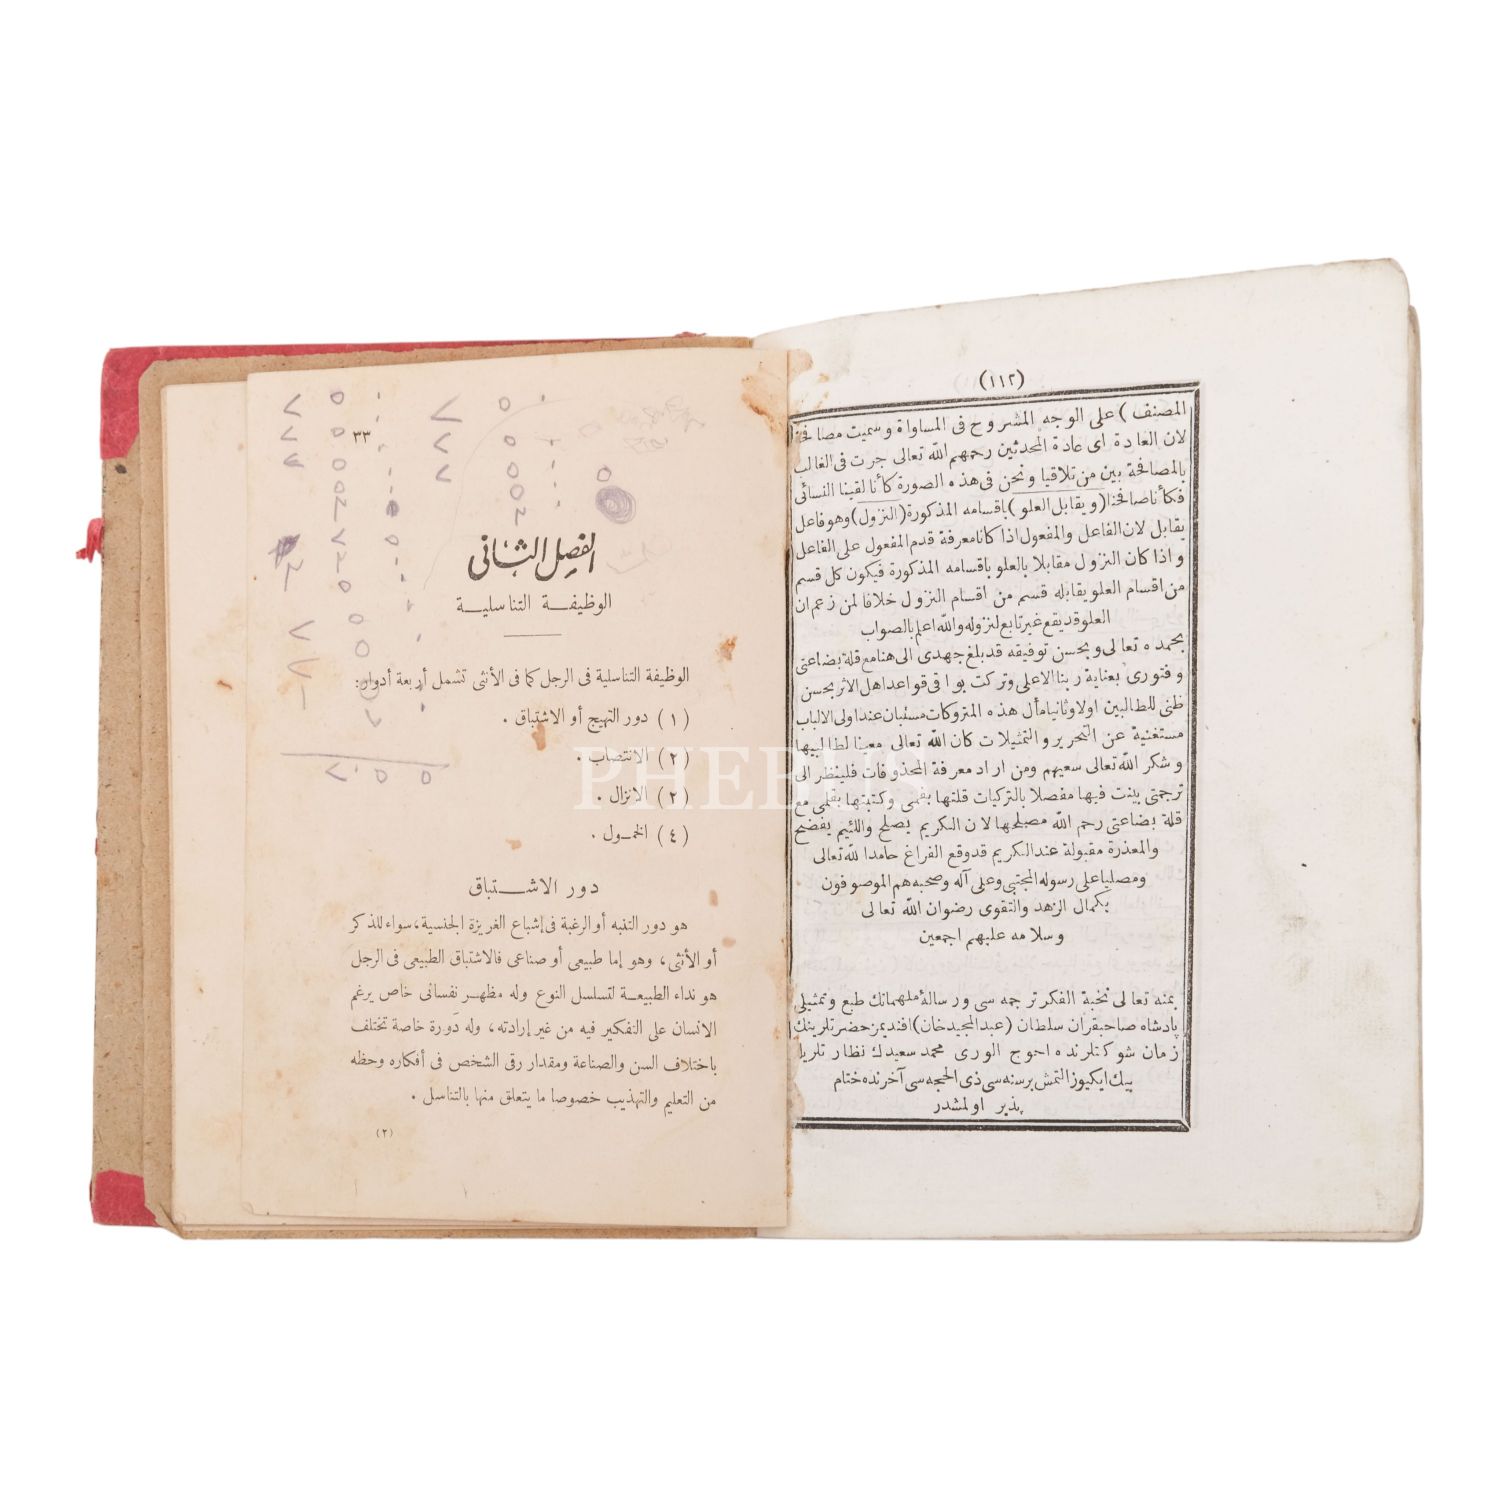 (١١٢)
المصنف) على الوجه المشروح فى المساواة وسميت مصافحة
لان العادة اى عادة المحدثين رحمهم الله تعالى جرت فى الغالب
بالمصافحة بين من تلاقيا ونحن فى هذه الصورة كأنا لقينا النسائى
فكأنا صافحنا (ويقابل العلو) باقسامه المذكورة (النزول) وهو فاعل
يقابل لان الفاعل والمفعول اذا كانا معرفة قدم المفعول على الفاعل
واذا كان النزول مقابلا بالعلو باقسامه المذكورة فيكون كل قسم
من اقسام العلو يقابله قسم من اقسام النزول خلافا لمن زعم ان
العلو قد يقع غير تابع لنزوله والله اعلم بالصواب
بحمده تعالى وبحسن توفيقه قد بلغ جهدى الى هنا مع قلة بضاعتى
وفتورى بعناية ربنا الاعلى وتركت بواقى قواعد اهل الاثر بحسن
ظنى للطالبين اولا وثانيا مأل هذه المتروكات مستبان عند اولى الالباب
مستغنية عن التحرير والتمثيلات كان الله تعالى معينا لطالبيها
وشكر الله تعالى سعيهم ومن اراد معرفة المحذوفات فلينظر الى
ترجمتى بينت فيها مفصلا بالتركيات قلتها بفمى وكتبتها بقلمى مع
قلة بضاعتى رحم الله مصلحها لان الكريم يصلح واللئيم يفضح
والمعذرة مقبولة عند الكريم قد وقع الفراغ حامدا لله تعالى
ومصليا على رسوله المجتبى وعلى آله وصحبه هم الموصوفون
بكمال الزهد والتقوى رضوان الله تعالى
وسلامه عليهم اجمعين
بمنه تعالى نخبة الفكر ترجمه سى ورسالۀ ملهماتك طبع وتمثيلى
پادشاه صاحبقران سلطان (عبدالمجيد خان) افنديمز حضرتلرينك
زمان شوكتلرنده احوج الورى محمد سعيدك نظارتلريله
بيك ايكيوز التمش بر سنه سى ذى الحجه سى آخرنده ختام
پذير اولمشدر
٣٣
الفصل الثانى
الوظيفة التناسلية
الوظيفة التناسلية فى الرجل كما فى الأنثى تشمل أربعة أدوار:
(١) دور التهيج أو الاشتباق .
(٢) الانتصاب .
(٢) الانزال .
(٤) الخمول .
دور الاشتباق
هو دور التنبه أو الرغبة فى إشباع الغريزة الجنسية، سواء للذكر
أو الأنثى، وهو إما طبيعى أو صناعى فالاشتباق الطبيعى فى الرجل
هو نداء الطبيعة لتسلسل النوع وله مظهر نفسانى خاص يرغم
الانسان على التفكير فيه من غير إرادته، وله دَورة خاصة تختلف
باختلاف السن والصناعة ومقدار رقى الشخص فى أفكاره وحظه
من التعليم والتهذيب خصوصا ما يتعلق منها بالتناسل .
(٢)
PHEBUS